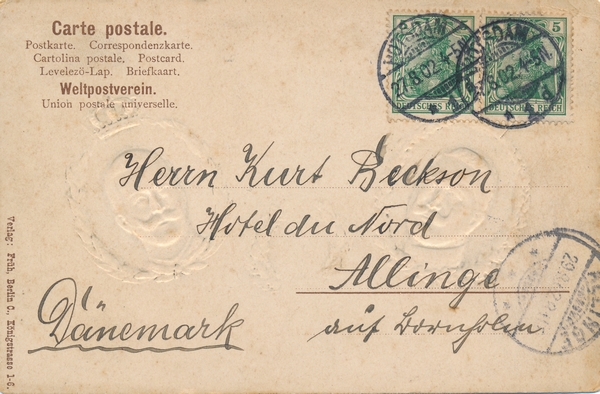 Carte postale.
Postkarte. Correspondenzkarte.
Cartolina postale. Postcard.
Levelező-Lap. Briefkaart.
Weltpostverein.
Union postale universelle.
5
POTSDAM
27.8.02.4-5N.
DEUTSCHES REICH
DEUTSCHES REICH
Herrn Kurt Beckson
Hotel du Nord
Allinge
auf Bornholm.
Dänemark
Verlag: Früb, Berlin C., Königstrasse 1-6.